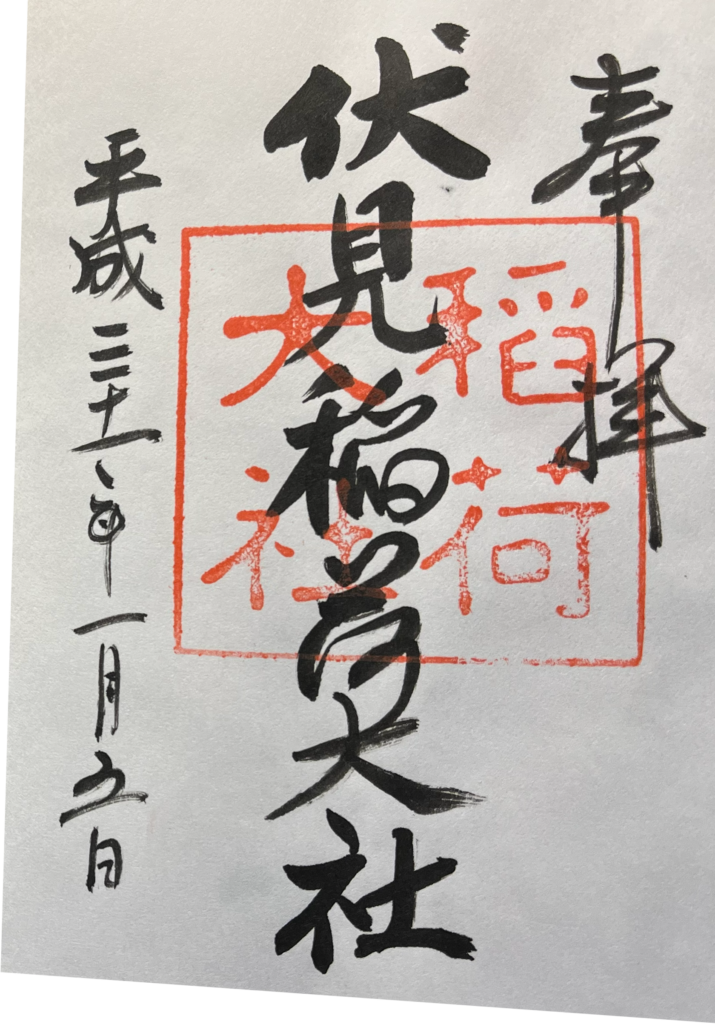 奉拝
伏見稲荷大社
稲荷
大社
平成三十一年一月五日